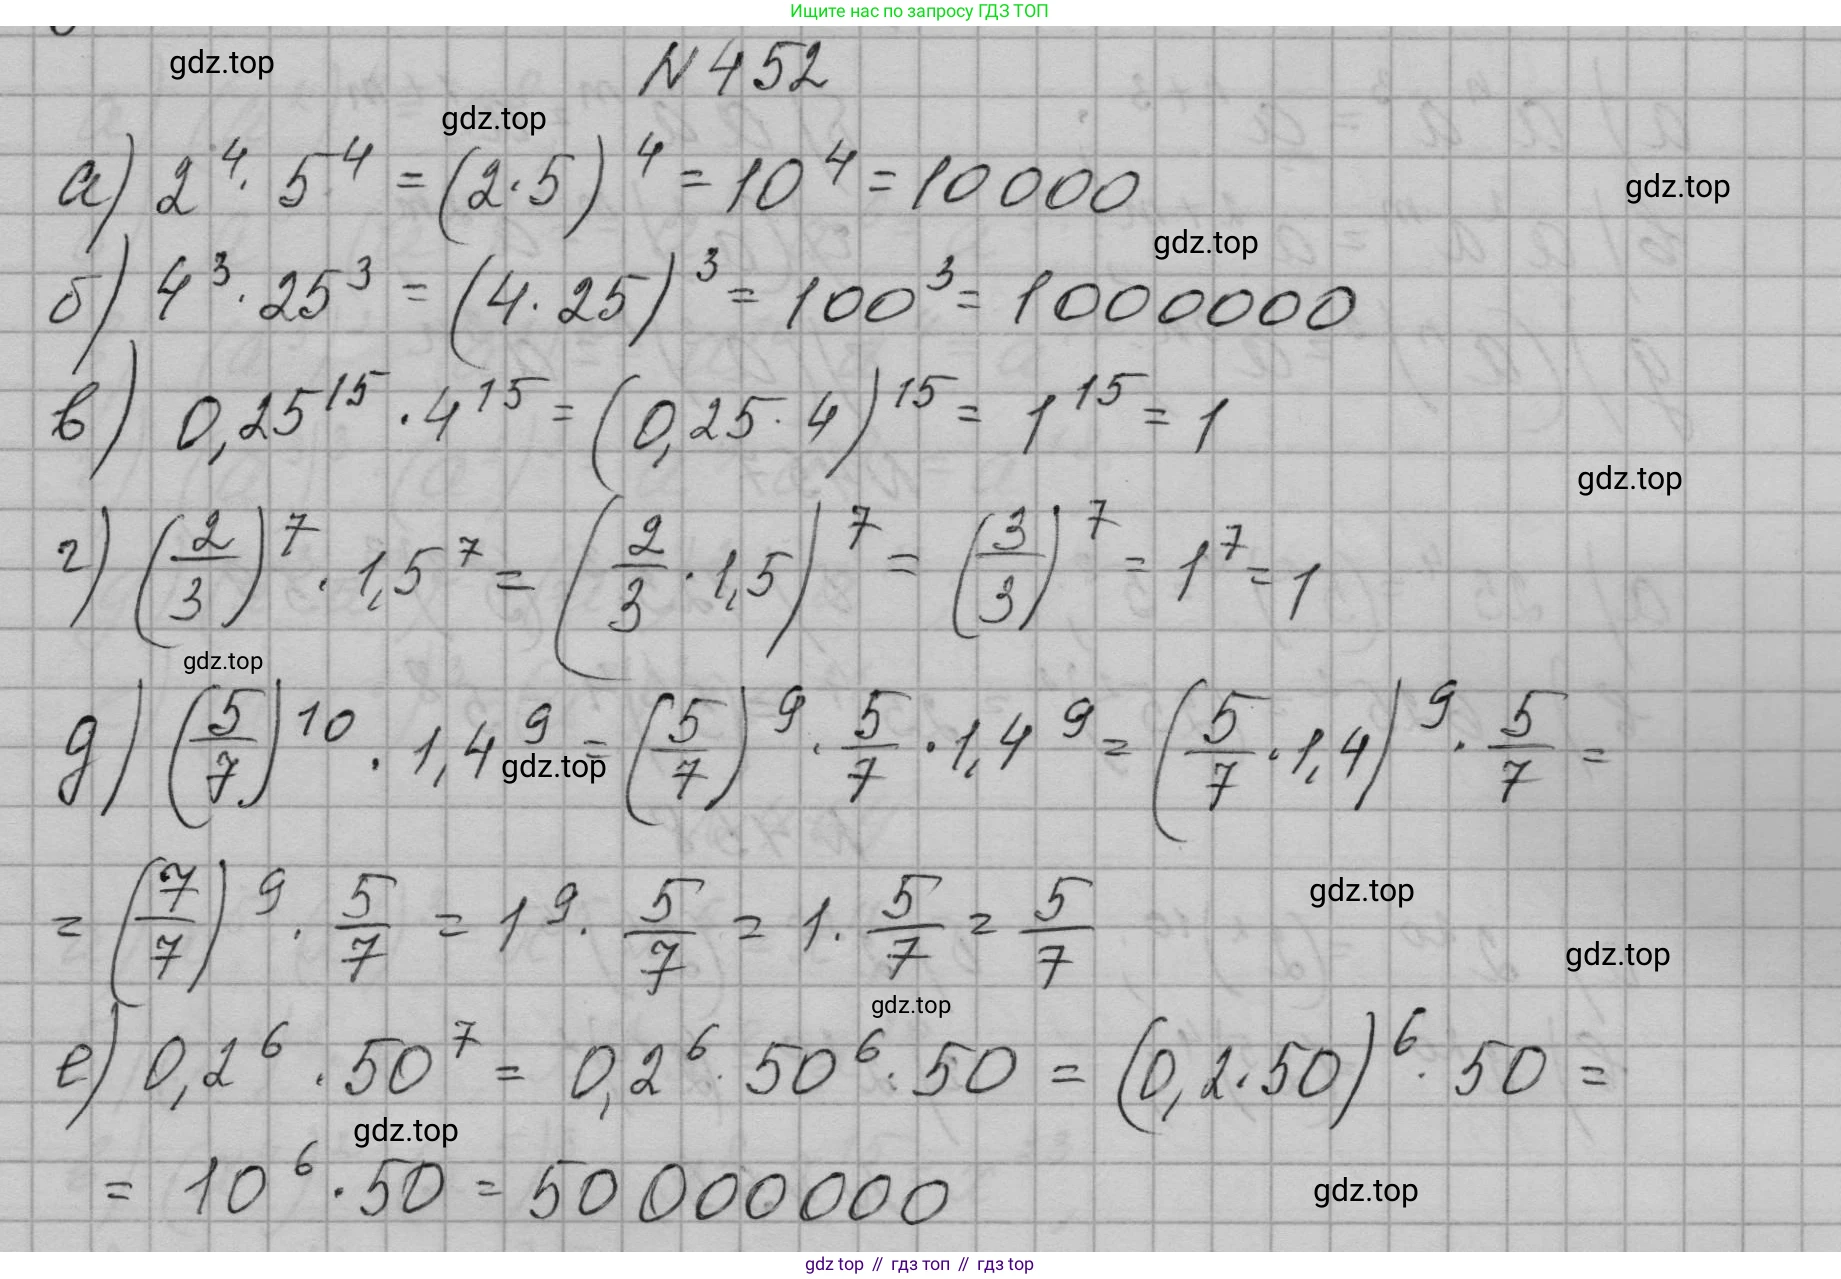 Ищите нас по запросу ГДЗ ТОП
gdz.top
N 452
gdz.top
а) 2⁴ · 5⁴ = (2·5)⁴ = 10⁴ = 10000
gdz.top
gdz.top
б) 4³ · 25³ = (4 · 25)³ = 100³ = 1000000
в) 0,25¹⁵ · 4¹⁵ = (0,25 · 4)¹⁵ = 1¹⁵ = 1
gdz.top
г) (2/3)⁷ · 1,5⁷ = (2/3 · 1,5)⁷ = (3/3)⁷ = 1⁷ = 1
gdz.top
д) (5/7)¹⁰ · 1,4⁹ = (5/7)⁹ · 5/7 · 1,4⁹ = (5/7 · 1,4)⁹ · 5/7 =
gdz.top
= (7/7)⁹ · 5/7 = 1⁹ · 5/7 = 1 · 5/7 = 5/7
gdz.top
gdz.top
gdz.top
е) 0,2⁶ · 50⁷ = 0,2⁶ · 50⁶ · 50 = (0,2 · 50)⁶ · 50 =
gdz.top
= 10⁶ · 50 = 50 000000
gdz.top
gdz top // гдз топ // гдз top